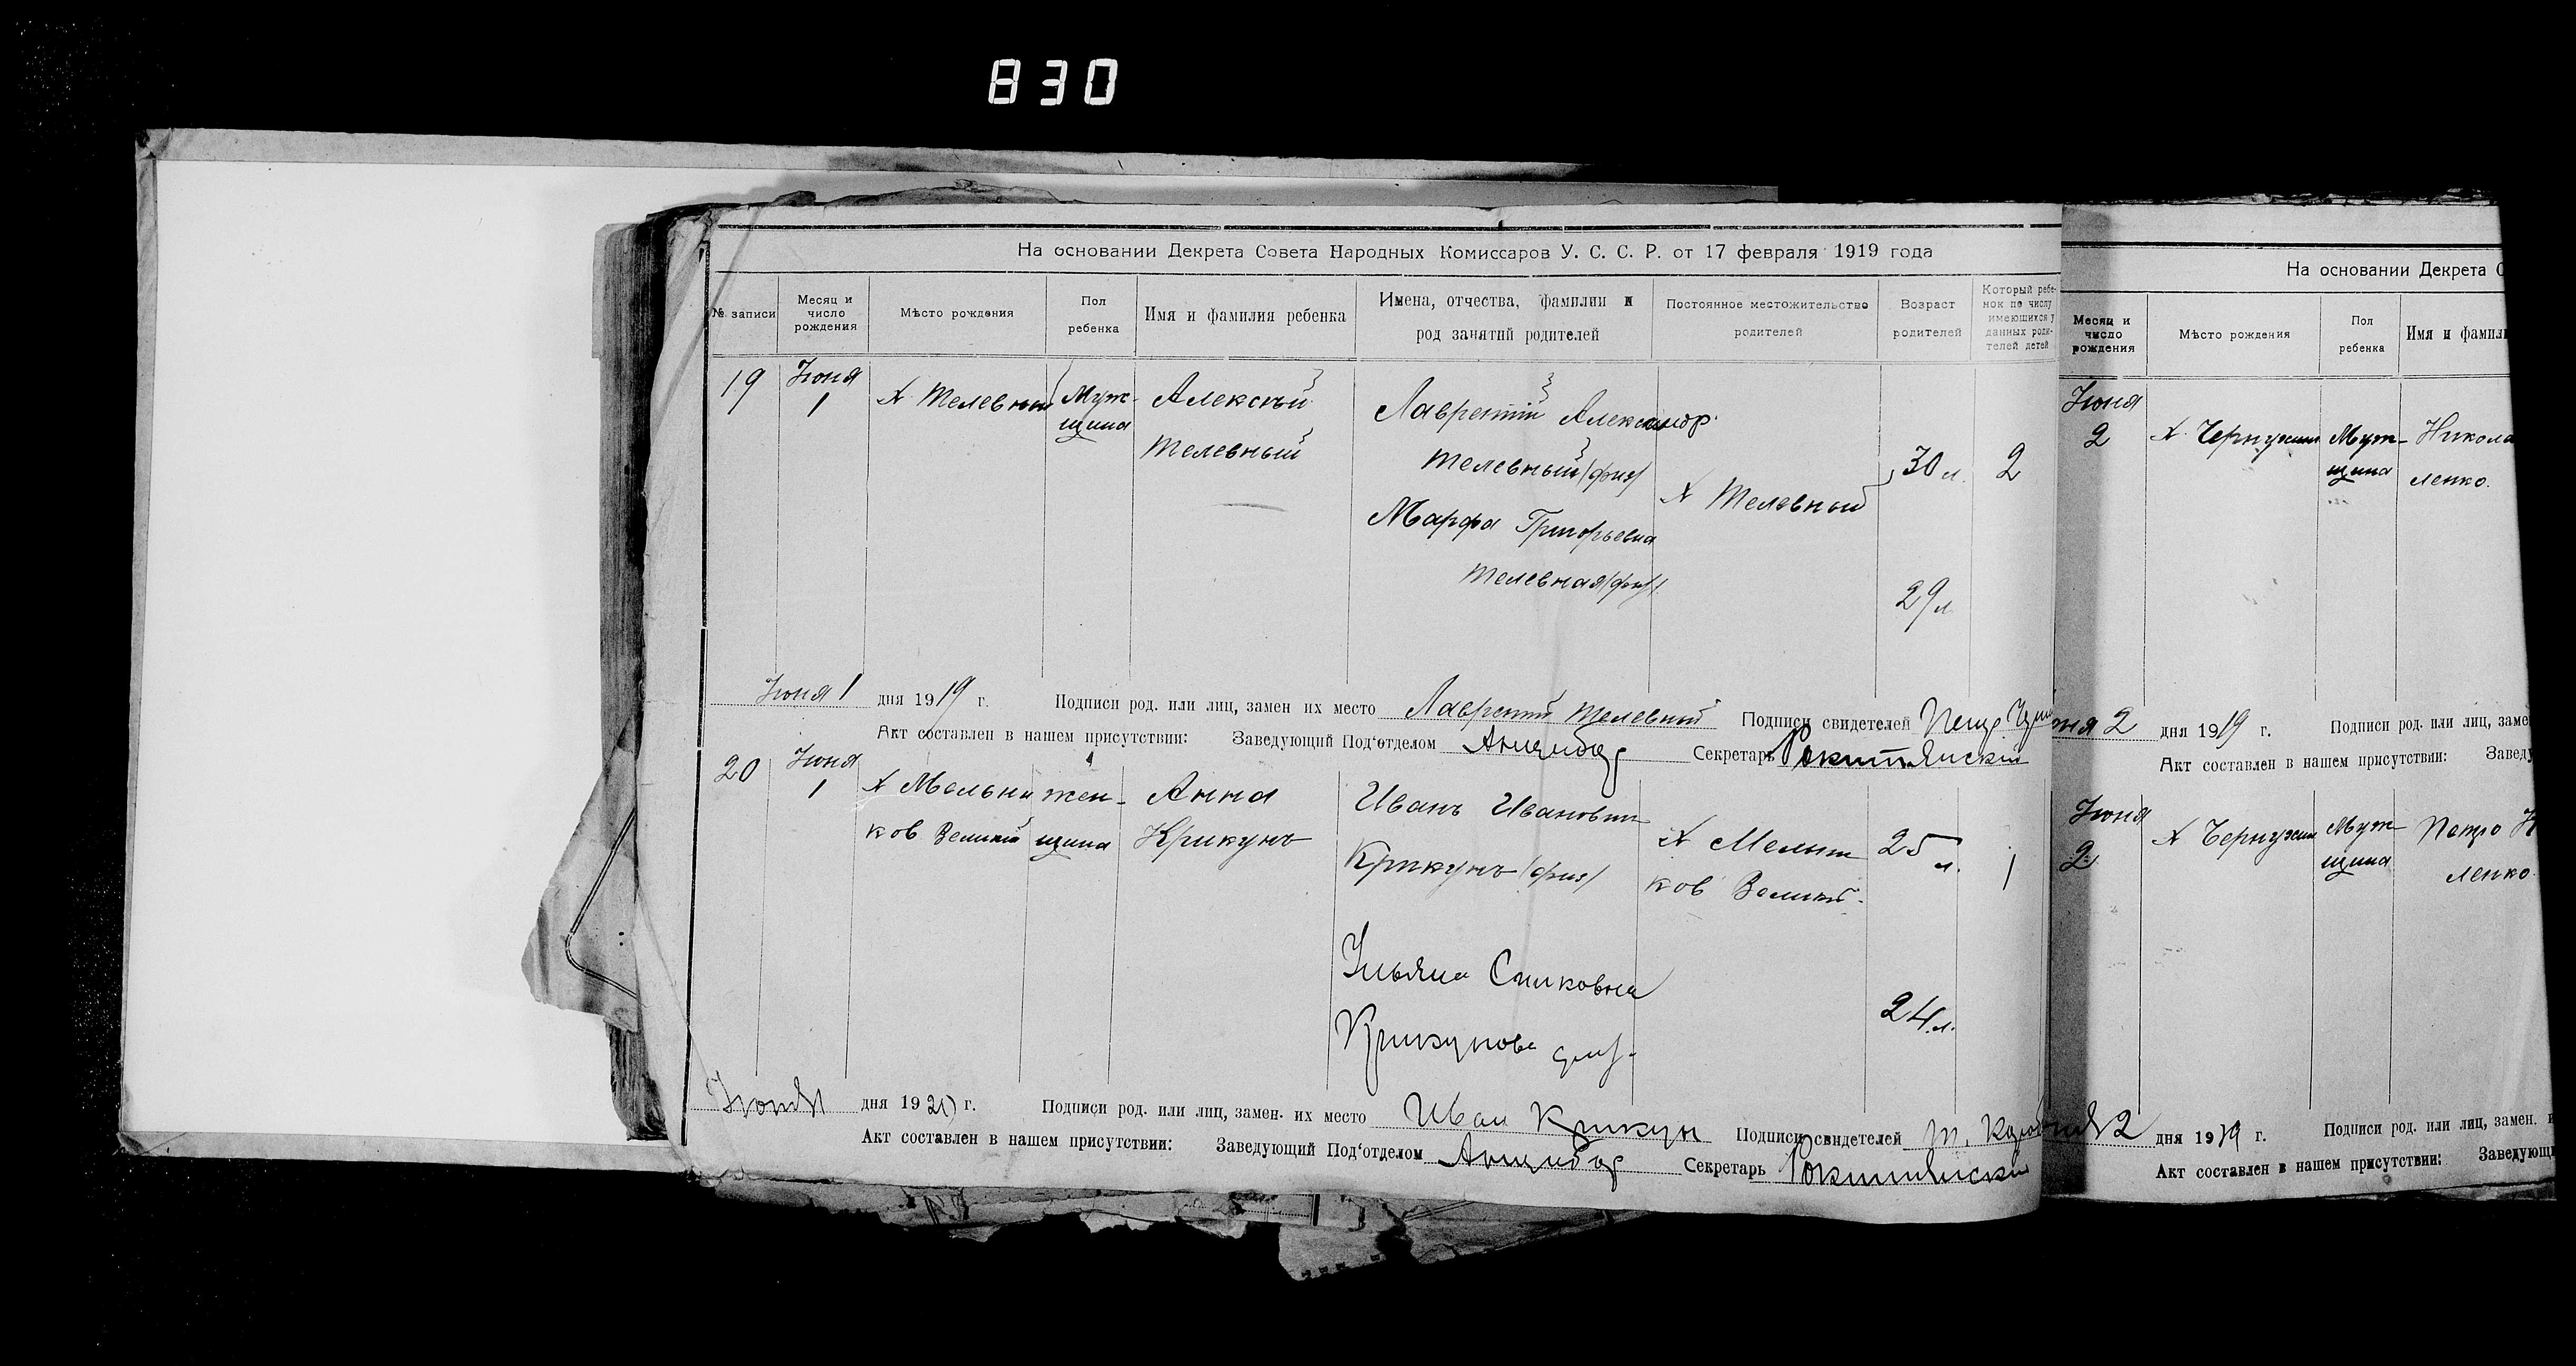 830
На основании Декрета Совета Народных Комиссаров У. С. С. Р. от 17 февраля 1919 года
№ записи
Месяц и
число
рождения
Мѣсто рождения
Пол
ребенка
Имя и фамилия ребенка
Имена, отчества, фамилии и
род занятий родителей
Постоянное местожительство
родителей
Возраст
родителей
Который ребе-
нок по числу
имеющихся у
данных роди-
телей детей
19
Июня
1
Х Телевный
Муж-
щина
Алексѣй
Телевный
Лаврентий Александр.
Телевный
Марфа Григорьевна
Телевная
Х Телевный
30 л.
29 л
2
Июня 1 дня 1919 г. Подписи род. или лиц, замен их место Лаврентий Телевный Подписи свидетелей
Акт составлен в нашем присутствии: Заведующий Под'отделом Секретарь Рокитянский
20
Июня
1
Х Мельни
ков Великий
жен-
щина
Анна
Крикунъ
Иванъ Иванович
Крикунъ
Ульяна
Крикунова
Х Мельни
ков Великий
25 л.
24 л.
1
Июня 1 дня 19 г. Подписи род. или лиц, замен. их место Иван Крикун Подписи свидетелей
Акт составлен в нашем присутствии: Заведующий Под'отделом Секретарь Рокитянский
На основании Декрета С
Месяц и
число
рождения
Мѣсто рождения
Пол
ребенка
Имя и фамил
Июня
2
Муж-
щина
Никола
ленко.
ня 2 дня 1919 г. Подписи род. или лиц, заме
Акт составлен в нашем присутствии: Завед
Июня
2
Муж-
щина
Петро
ленко.
2 дня 1919 г. Подписи род. или лиц, замен.
Акт составлен в нашем присутствии: Заведующ